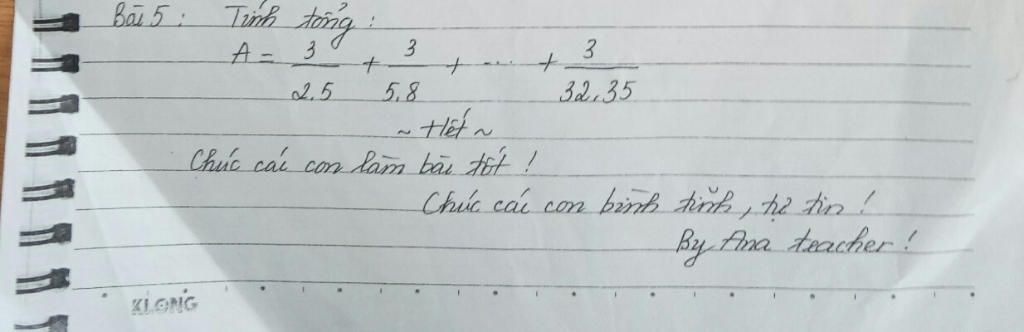 Bài 5: Tính tổng:
A = 3/2.5 + 3/5.8 + ... + 3/32.35
~ Hết ~
Chúc các con làm bài tốt!
Chúc các con bình tĩnh, tự tin!
By Ana teacher!
KLONG